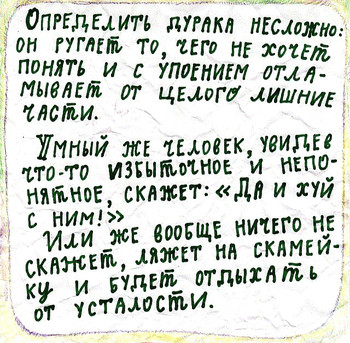 Определить дурака несложно:
он ругает то, чего не хочет
понять и с упоением отла-
мывает от целого лишние
части.
Умный же человек, увидев
что-то избыточное и непо-
нятное, скажет: «Да и хуй
с ним!»
Или же вообще ничего не
скажет, ляжет на скамей-
ку и будет отдыхать
от усталости.